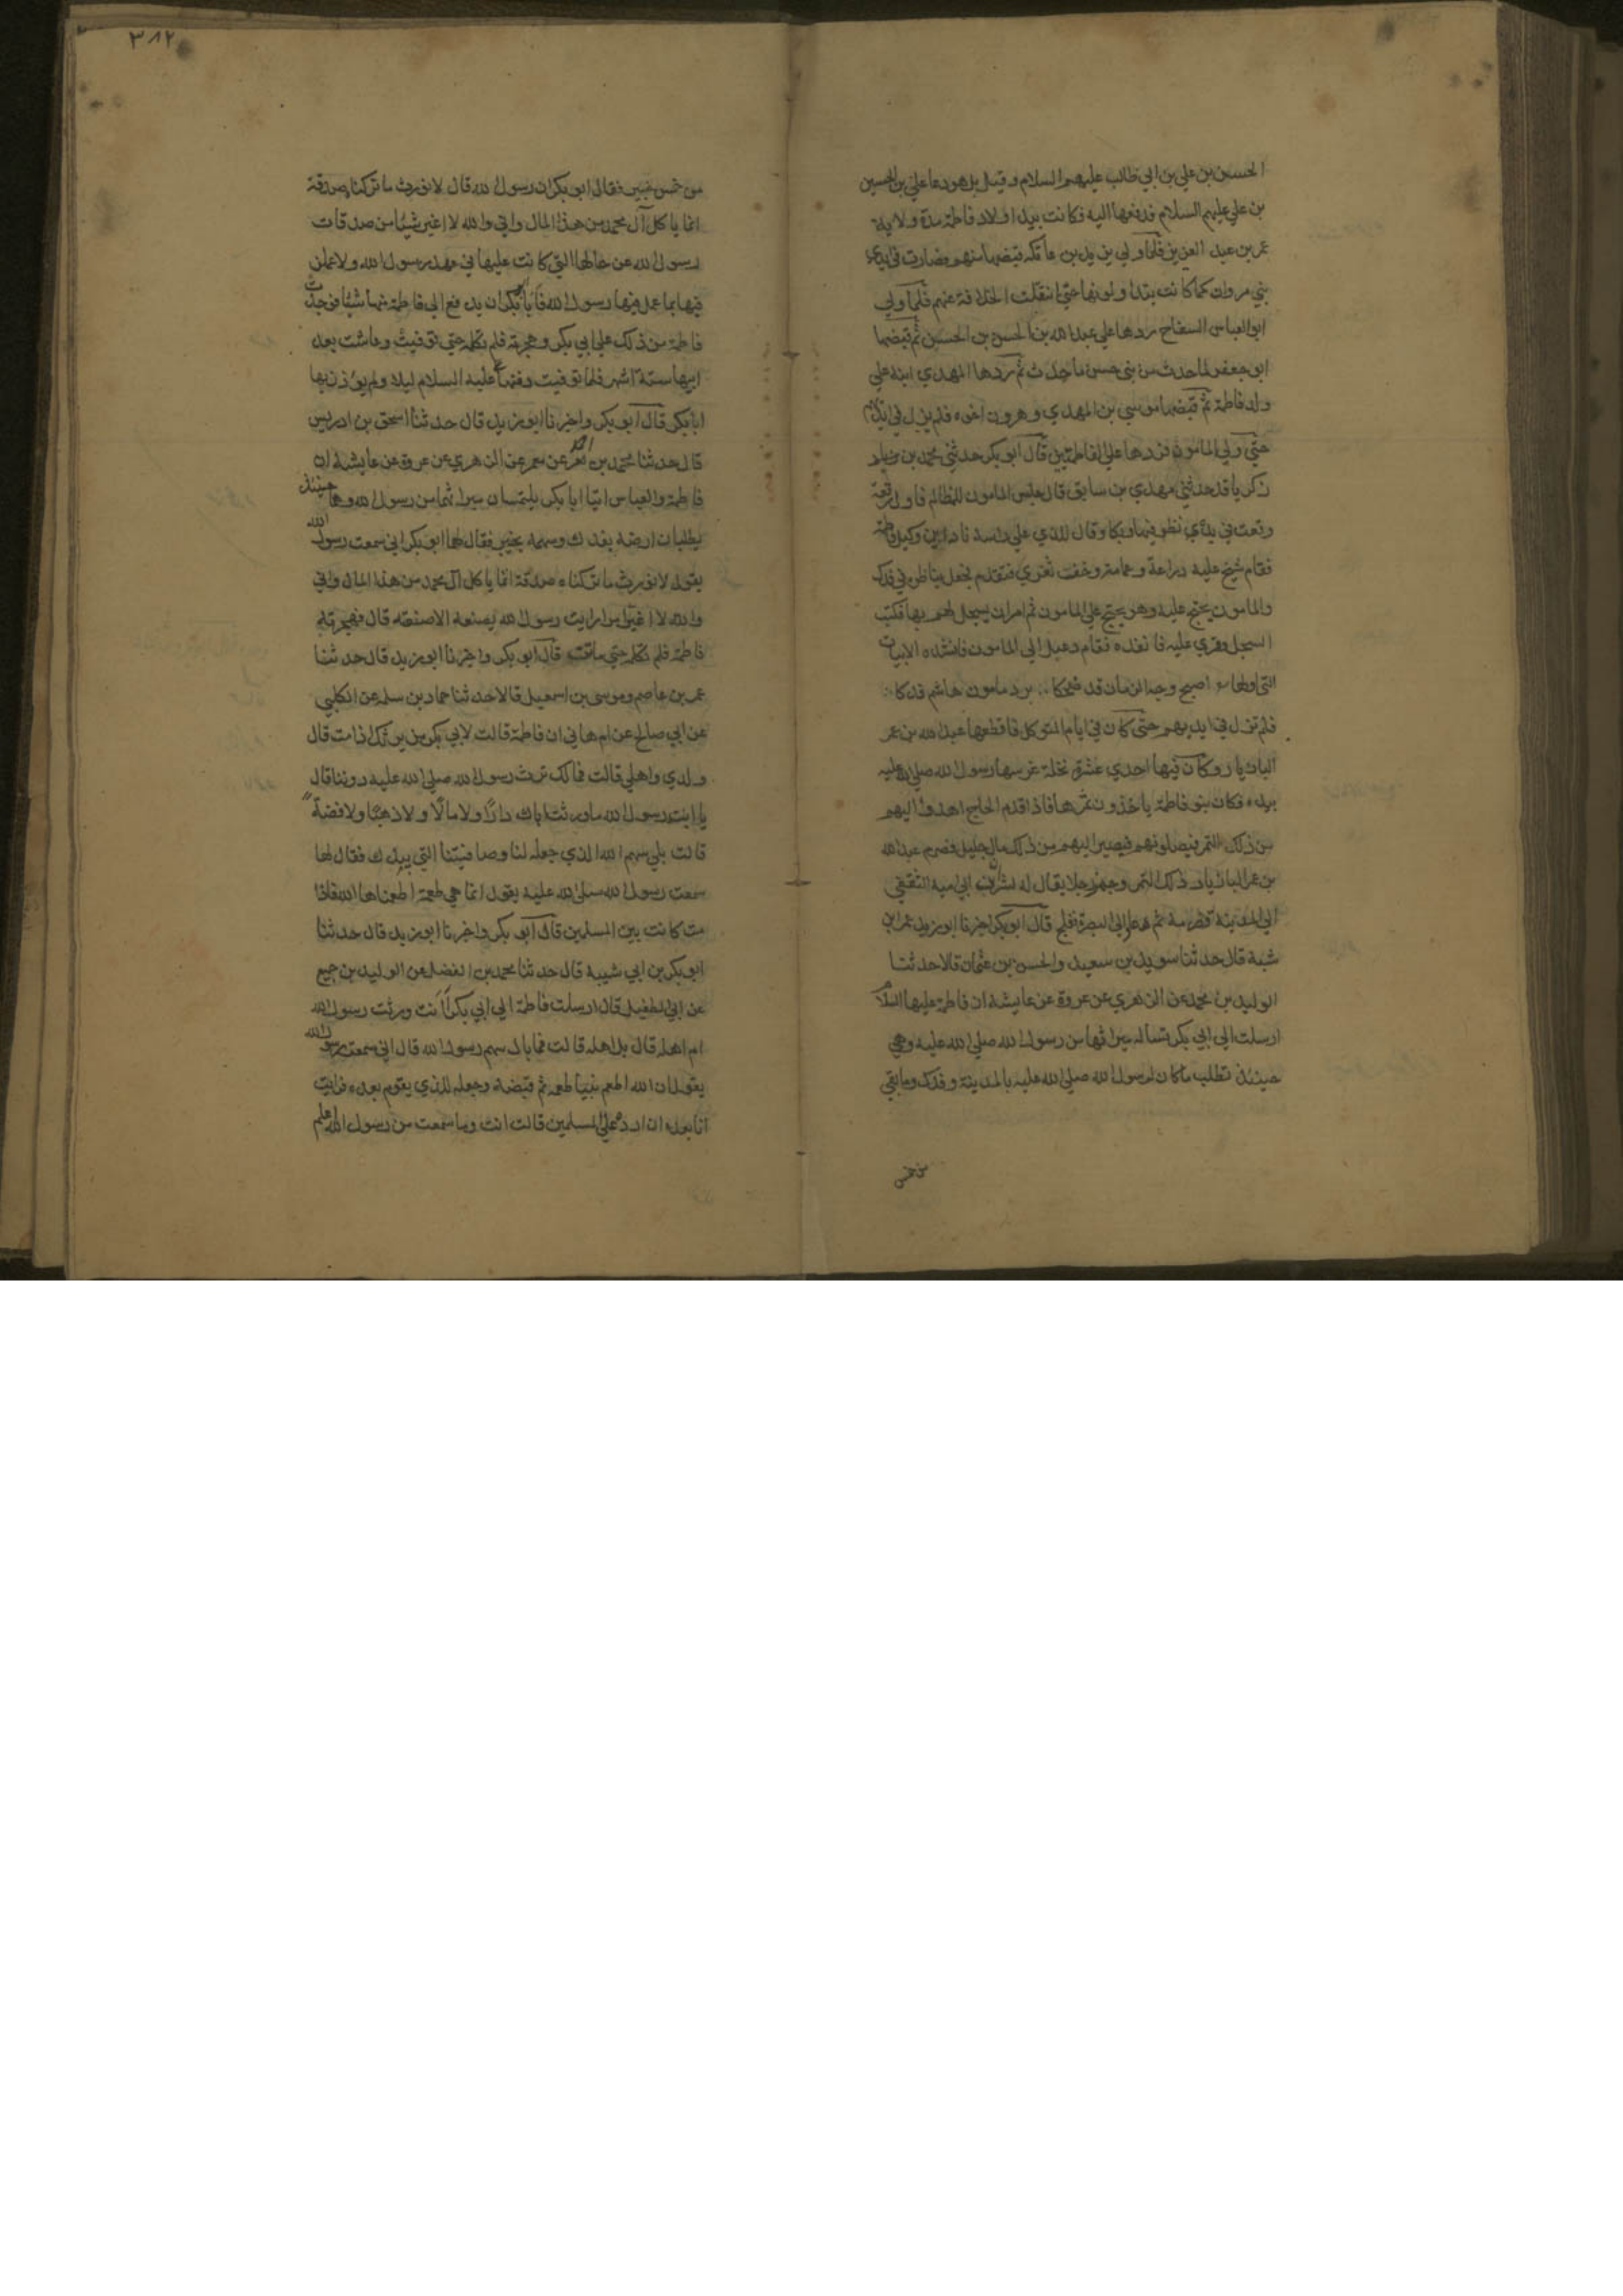 الحسين بن علي بن ابي طالب عليهم السلام وقيل بل هو دعا علي بن الحسين
بن علي عليهم السلام فدفعها اليه فكانت بيد اولاد فاطمة مدة ولاية
عمر بن عبد العزيز فلما ولي يزيد بن عاتكه قبضها منهم فصارت في ايدي
بني مروان كما كانت يتداولونها حتى انتقلت الخلافة عنهم فلما ولي
ابو العباس السفاح ردها على عبد الله بن الحسن بن الحسن ثم قبضها
ابو جعفر لما حدث من بني حسن ما حدث ثم ردها المهدي ابنه على
ولد فاطمة ثم قبضها موسى بن المهدي وهرون اخوه فلم يزل في ايديهم
حتى ولي المامون فردها على الفاطميين قال ابو بكر حدثني محمد بن
زكريا قد حدثني مهدي بن سابق قال جلس المامون للمظالم فاول رقعة
وقعت في يده نظر فيها وبكا وقال للذي على راسه ناد اين وكيل فاطمة
فقام شيخ عليه دراعة وعمامة وخف تغزي فتقدم فجعل يناظره في فدك
والمامون يحتج عليه وهو يحتج على المامون ثم امر ان يسجل لهم بها فكتب
السجل وقري عليه فانفذه فقام دعبل الى المامون فانشده الابيات
التي اولها اصبح وجه الزمان قد ضحكا برد مامون هاشم فدكا
فلم تزل في ايديهم حتى كان في ايام المتوكل فاقطعها عبد الله بن عمر
البازيار وكان فيها احدي عشرة نخلة غرسها رسول الله صلى الله عليه
بيده فكان بنو فاطمة ياخذون ثمرها فاذا قدم الحاج اهدوا اليهم
من ذلك التمر فيصلونهم فيصير اليهم من ذلك مال جليل فصرم عبد الله
بن عمر البازيار ذلك التمر وجه رجلا يقال له بشران بن ابي امية الثقفي
الى المدينة فصرمه ثم عاد الى البصرة ففلج قال ابو بكر اخبرنا ابو زيد عمر بن
شبة قال حدثنا سويد بن سعيد والحسن بن عثمان قالا حدثنا
الوليد بن محمد عن الزهري عن عروة عن عايشة ان فاطمة عليها السلام
ارسلت الى ابي بكر تساله ميراثها من رسول الله صلى الله عليه وهي
حينئذ تطلب ما كان لرسول الله صلى الله عليه بالمدينة وفدك وما بقي
من خمس
٣٨٢
من خمس خيبر فقال ابو بكر ان رسول الله قال لا نورث ما تركناه صدقة
انما ياكل آل محمد من هذا المال واني والله لا اغير شيئا من صدقات
رسول الله عن حالها التي كانت عليها في عهد رسول الله ولاعملن
فيها بما عمل فيها رسول الله فابى ابو بكر ان يدفع الى فاطمة منها شيئا فوجدت
فاطمة من ذلك على ابي بكر وهجرته فلم تكلمه حتى توفيت وعاشت بعد
ابيها ستة اشهر فلما توفيت دفنها علي عليه السلام ليلا ولم يؤذن بها
ابا بكر قال ابو بكر واخبرنا ابو زيد قال حدثنا اسحق بن ادريس
قال حدثنا محمد بن احمد عن معمر عن الزهري عن عروة عن عايشة ان
فاطمة والعباس اتيا ابا بكر يلتمسان ميراثهما من رسول الله وهما حينئذ
يطلبان ارضه بفدك وسهمه بخيبر فقال لهما ابو بكر اني سمعت رسول الله
يقول لا نورث ما تركناه صدقة انما ياكل آل محمد من هذا المال واني
والله لا اغير امرا رايت رسول الله يصنعه الا صنعته قال فهجرته
فاطمة فلم تكلمه حتى ماتت قال ابو بكر واخبرنا ابو زيد قال حدثنا
عمر بن عاصم وموسى بن اسمعيل قالا حدثنا حماد بن سلمه عن الكلبي
عن ابي صالح عن ام هاني ان فاطمة قالت لابي بكر من يرثك اذا مت قال
ولدي واهلي قالت فمالك ترث رسول الله صلى الله عليه دوننا قال
يا ابنت رسول الله ما ورثت اباك دارا ولا مالا ولا ذهبا ولا فضة
قالت بلى سهم الله الذي جعله لنا وصافيتنا التي بيدك فقال لها
سمعت رسول الله صلى الله عليه يقول انما هي طعمة اطعمناها الله فاذا
مت كانت بين المسلمين قال ابو بكر واخبرنا ابو زيد قال حدثنا
ابو بكر بن ابي شيبه قال حدثنا محمد بن الفضل عن الوليد بن جميع
عن ابي الطفيل قال ارسلت فاطمة الى ابي بكر أأنت ورثت رسول الله
ام اهله قال بل اهله قالت فما بال سهم رسول الله قال اني سمعت رسول الله
يقول ان الله اطعم نبيا طعمة ثم قبضه وجعله للذي يقوم بعده فرايت
انا بعده ان ارده على المسلمين قالت انت وما سمعت من رسول الله اعلم